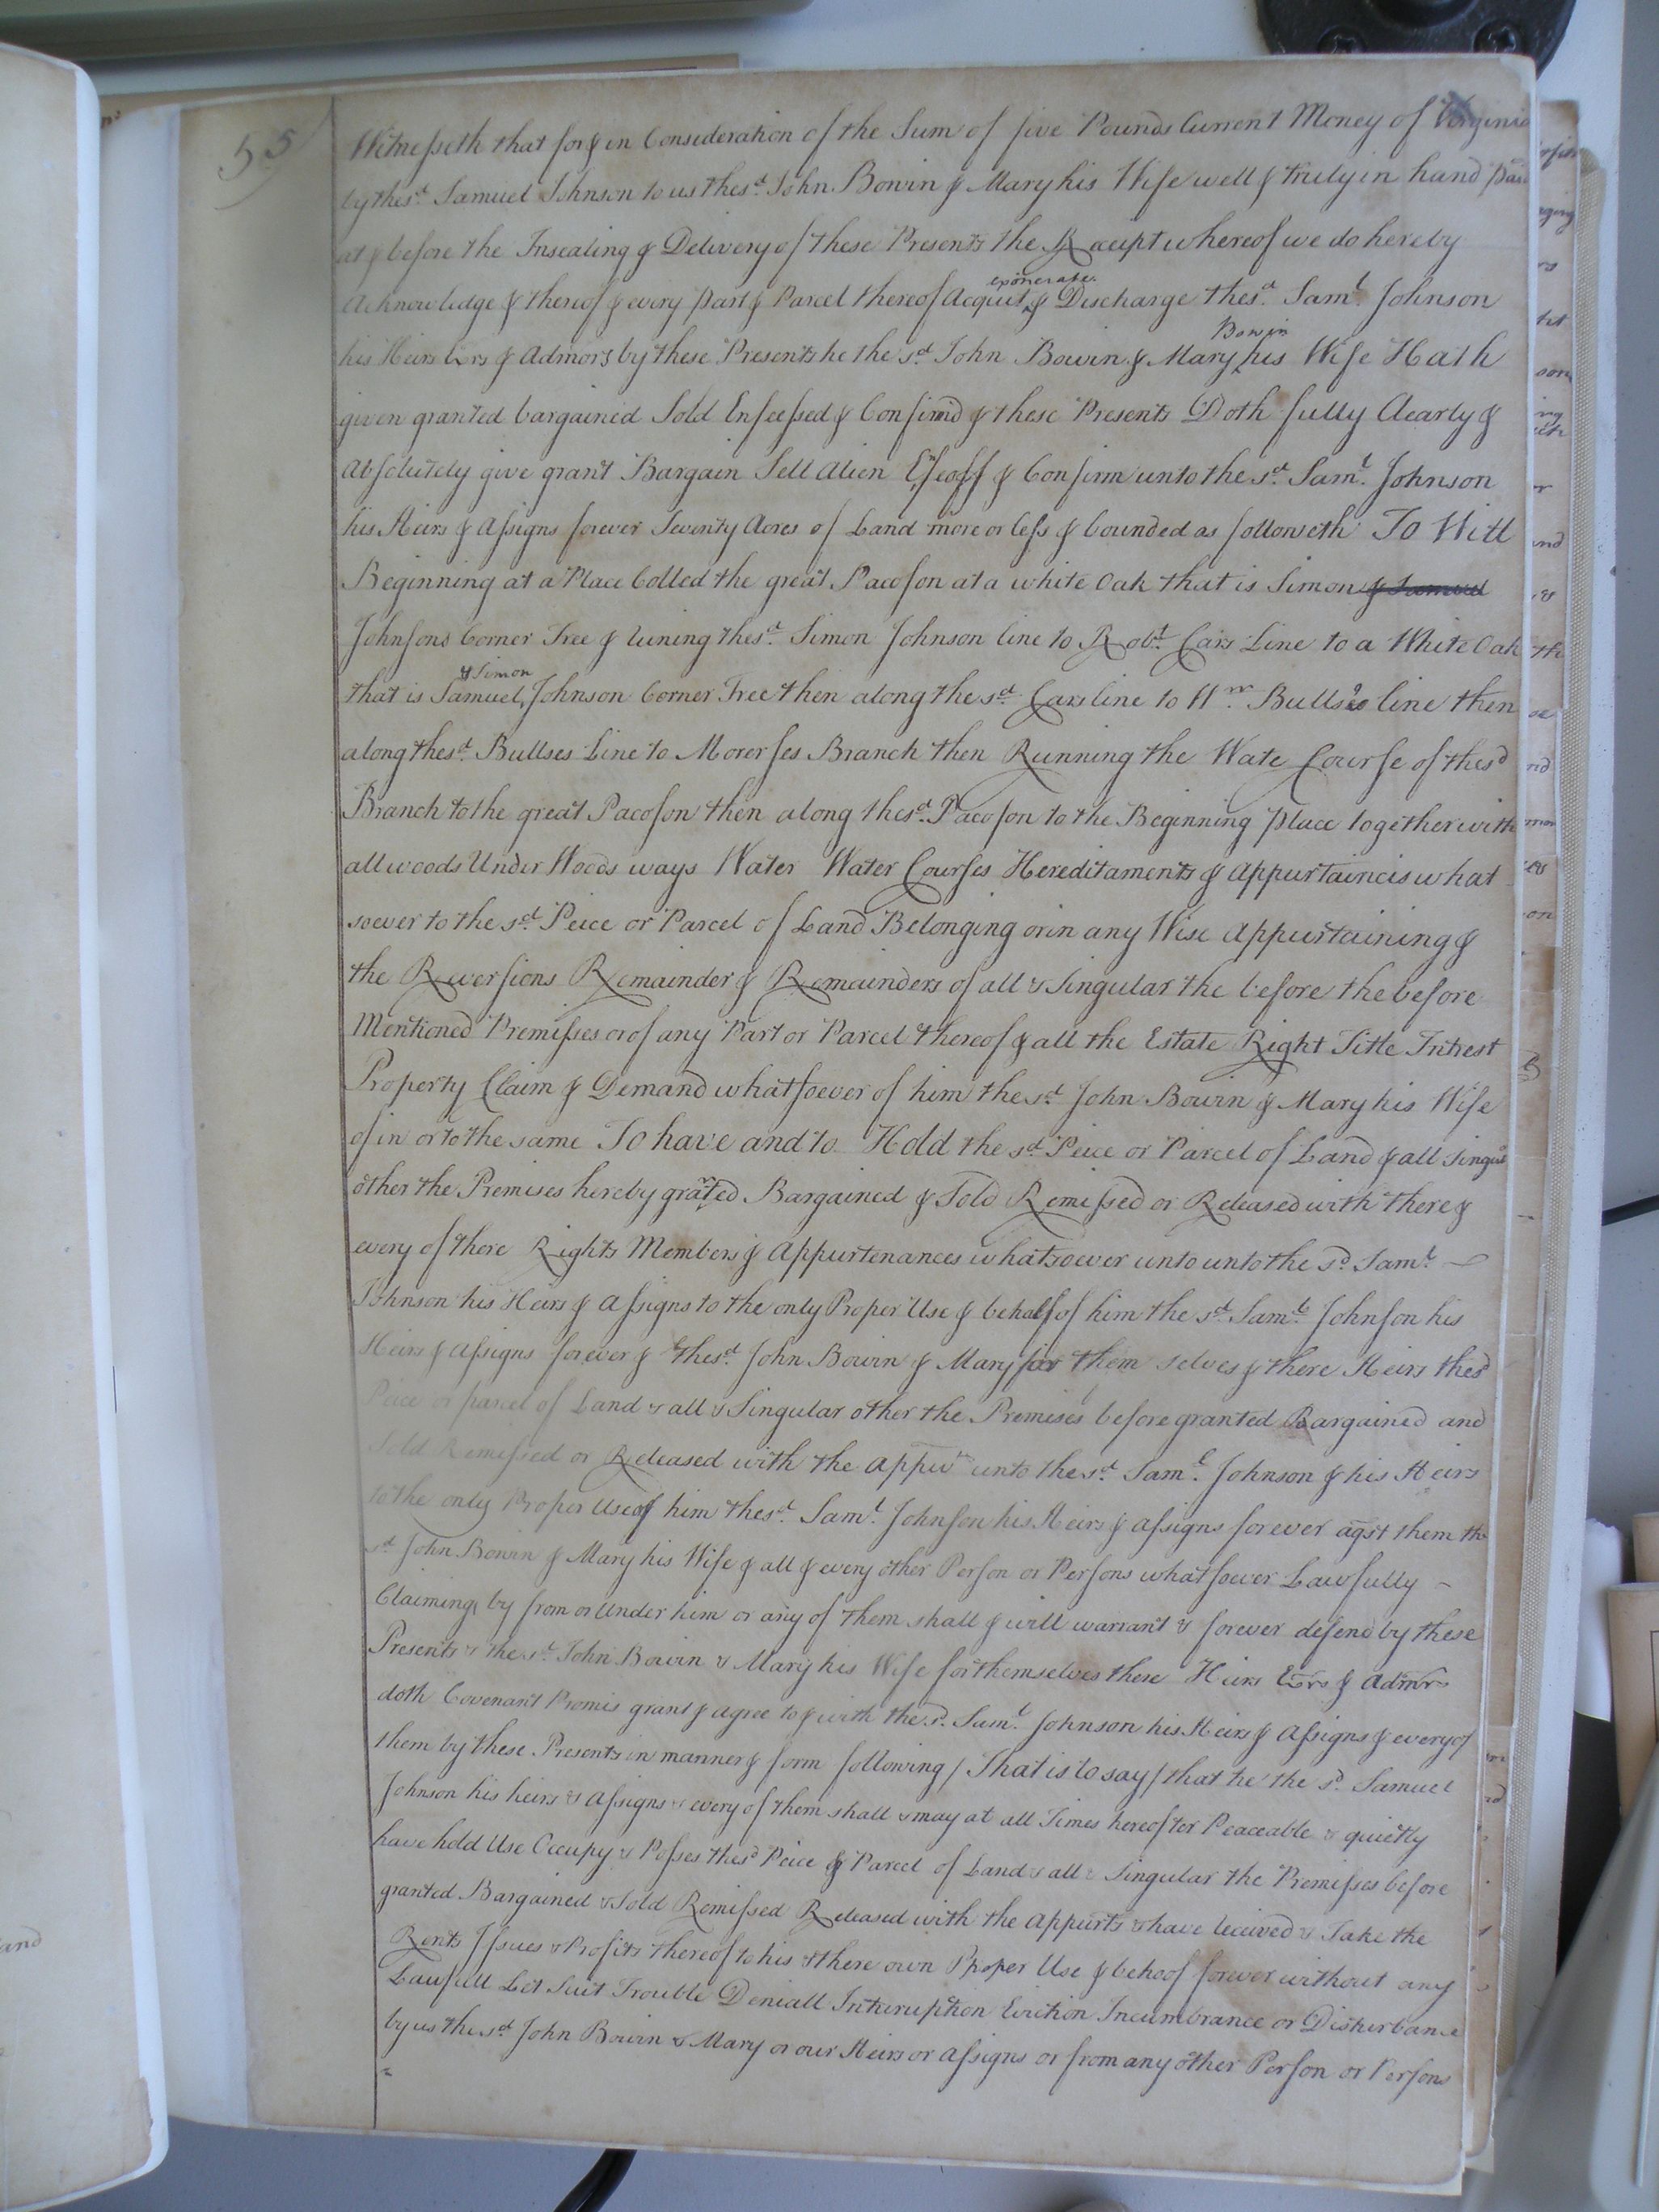 55
Witnesseth that for & in Consideration of the Sum of five Pounds Current Money of Virginia
by the sd. Samuel Johnson to us the sd. John Bowin & Mary his Wife well & truly in hand paid
at & before the Insealing & Delivery of these Presents the Receipt whereof we do hereby
Acknowledge & thereof & every part & Parcel thereof Acquit ^exonerate & Discharge the sd. Saml. Johnson
his Heirs Exrs & Admors by these Presents he the sd. John Bowin & Mary ^Bowin his Wife Hath
given granted bargained Sold Enfeessed & Confirmd & these Presents Doth fully Clearly &
Absolutely give grant Bargain Sell Alien Enfeoff & Confirm unto the sd. Saml. Johnson
his Heirs & Assigns forever Seventy Acres of Land more or less & bounded as followeth To Witt
Beginning at a Place Colled the great Pacoson at a white Oak that is Simon & Samuel
Johnsons Corner Tree & runing the sd. Simon Johnson line to Robt. Cars Line to a White Oak
that is Samuel ^& Simon Johnson Corner Tree then along the sd. Cars line to Wm. Bullses line then
along the sd. Bullses Line to Morerses Branch then Running the Wate Course of the sd
Branch to the great Pacoson then along the sd. Pacoson to the Beginning place together with
all woods Under Woods ways Water Water Courses Hereditaments & Appurtaincis what
soever to the sd. Peice or Parcel of Land Belonging or in any Wise Appurtaining &
the Reversions Remainder & Remainders of all & Singular the before the before
Mentioned Premisses or of any Part or Parcel thereof & all the Estate Right Title Intrest
Property Claim & Demand whatsoever of him the sd. John Bowin & Mary his Wife
of in or to the same To have and to Hold the sd. Peice or Parcel of Land & all Singul
other the Premises hereby granted Bargained & Sold Remissed or Released with there &
every of there Rights Members & Appurtenances whatsoever unto unto the sd. Saml.
Johnson his Heirs & Assigns to the only Proper Use & behalf of him the sd. Saml. Johnson his
Heirs & Assigns forever & the sd. John Bowin & Mary for them selves & there Heirs the sd
Peice or parcel of Land & all & Singular other the Premises before granted Bargained and
Sold Remissed or Released with the Appurts unto the sd. Saml. Johnson & his Heirs
to the only Proper Use of him the sd. Saml. Johnson his Heirs & assigns forever agst them the
sd. John Bowin & Mary his Wife & all & every other Person or Persons whatsoever Lawfully
Claiming by from or Under him or any of them shall & will warrant & forever defend by these
Presents & the sd. John Bowin & Mary his Wife for themselves there Heirs Exrs & Admrs
doth Covenant Promis grant & agree to & with the sd. Saml. Johnson his Heirs & Assigns & every of
them by these Presents in manner & form following / That is to say / that he the sd. Samuel
Johnson his heirs & Assigns & every of them shall & may at all Times hereofter Peaceable & quietly
have hold Use Occupy & Posses the sd Peice & Parcel of Land & all & Singular the Premisses before
granted Bargained & Sold Remissed Released with the Appurts & have Received & Take the
Rents Issues & Profits thereof to his & there own Proper Use & behoof forever without any
Lawfull Let Suit Trouble Deniall Interuption Eviction Incumbrance or Disturbance
by us the sd. John Bowin & Mary or our Heirs or Assigns or from any other Person or Persons